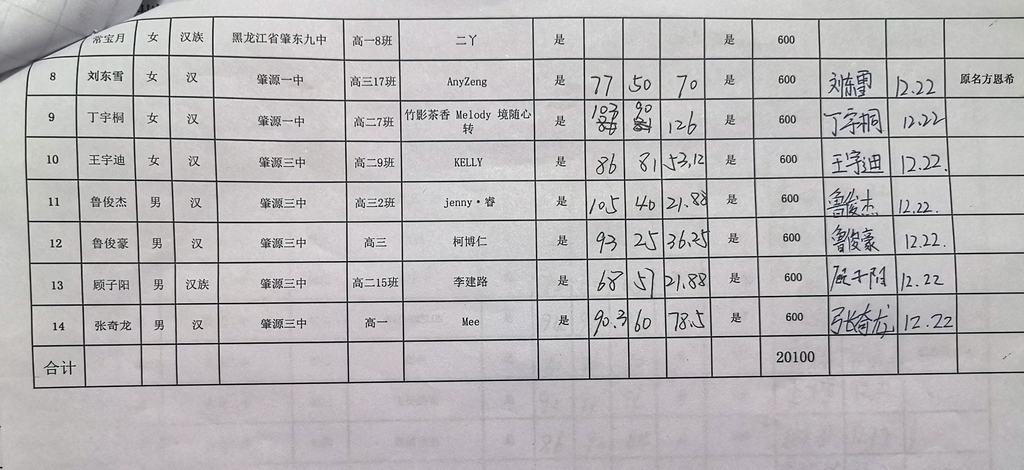 常宝月 女 汉族 黑龙江省肇东九中 高一8班 二丫 是 是 600
8 刘东雪 女 汉 肇源一中 高三17班 AnyZeng 是 77 50 70 是 600 刘东雪 12.22 原名方恩希
9 丁宇桐 女 汉 肇源一中 高二7班 竹影茶香 Melody 境随心转 是 103 90 126 是 600 丁宇桐 12.22
10 王宇迪 女 汉 肇源三中 高二9班 KELLY 是 86 81 53.12 是 600 王宇迪 12.22.
11 鲁俊杰 男 汉 肇源三中 高三2班 jenny·睿 是 105 40 21.88 是 600 鲁俊杰 12.22.
12 鲁俊豪 男 汉 肇源三中 高三 柯博仁 是 93 25 36.25 是 600 鲁俊豪 12.22.
13 顾子阳 男 汉族 肇源三中 高二15班 李建路 是 68 57 21.88 是 600 顾子阳 12.22
14 张奇龙 男 汉 肇源三中 高一 Mee 是 90.3 60 78.5 是 600 张奇龙 12.22
合计 20100